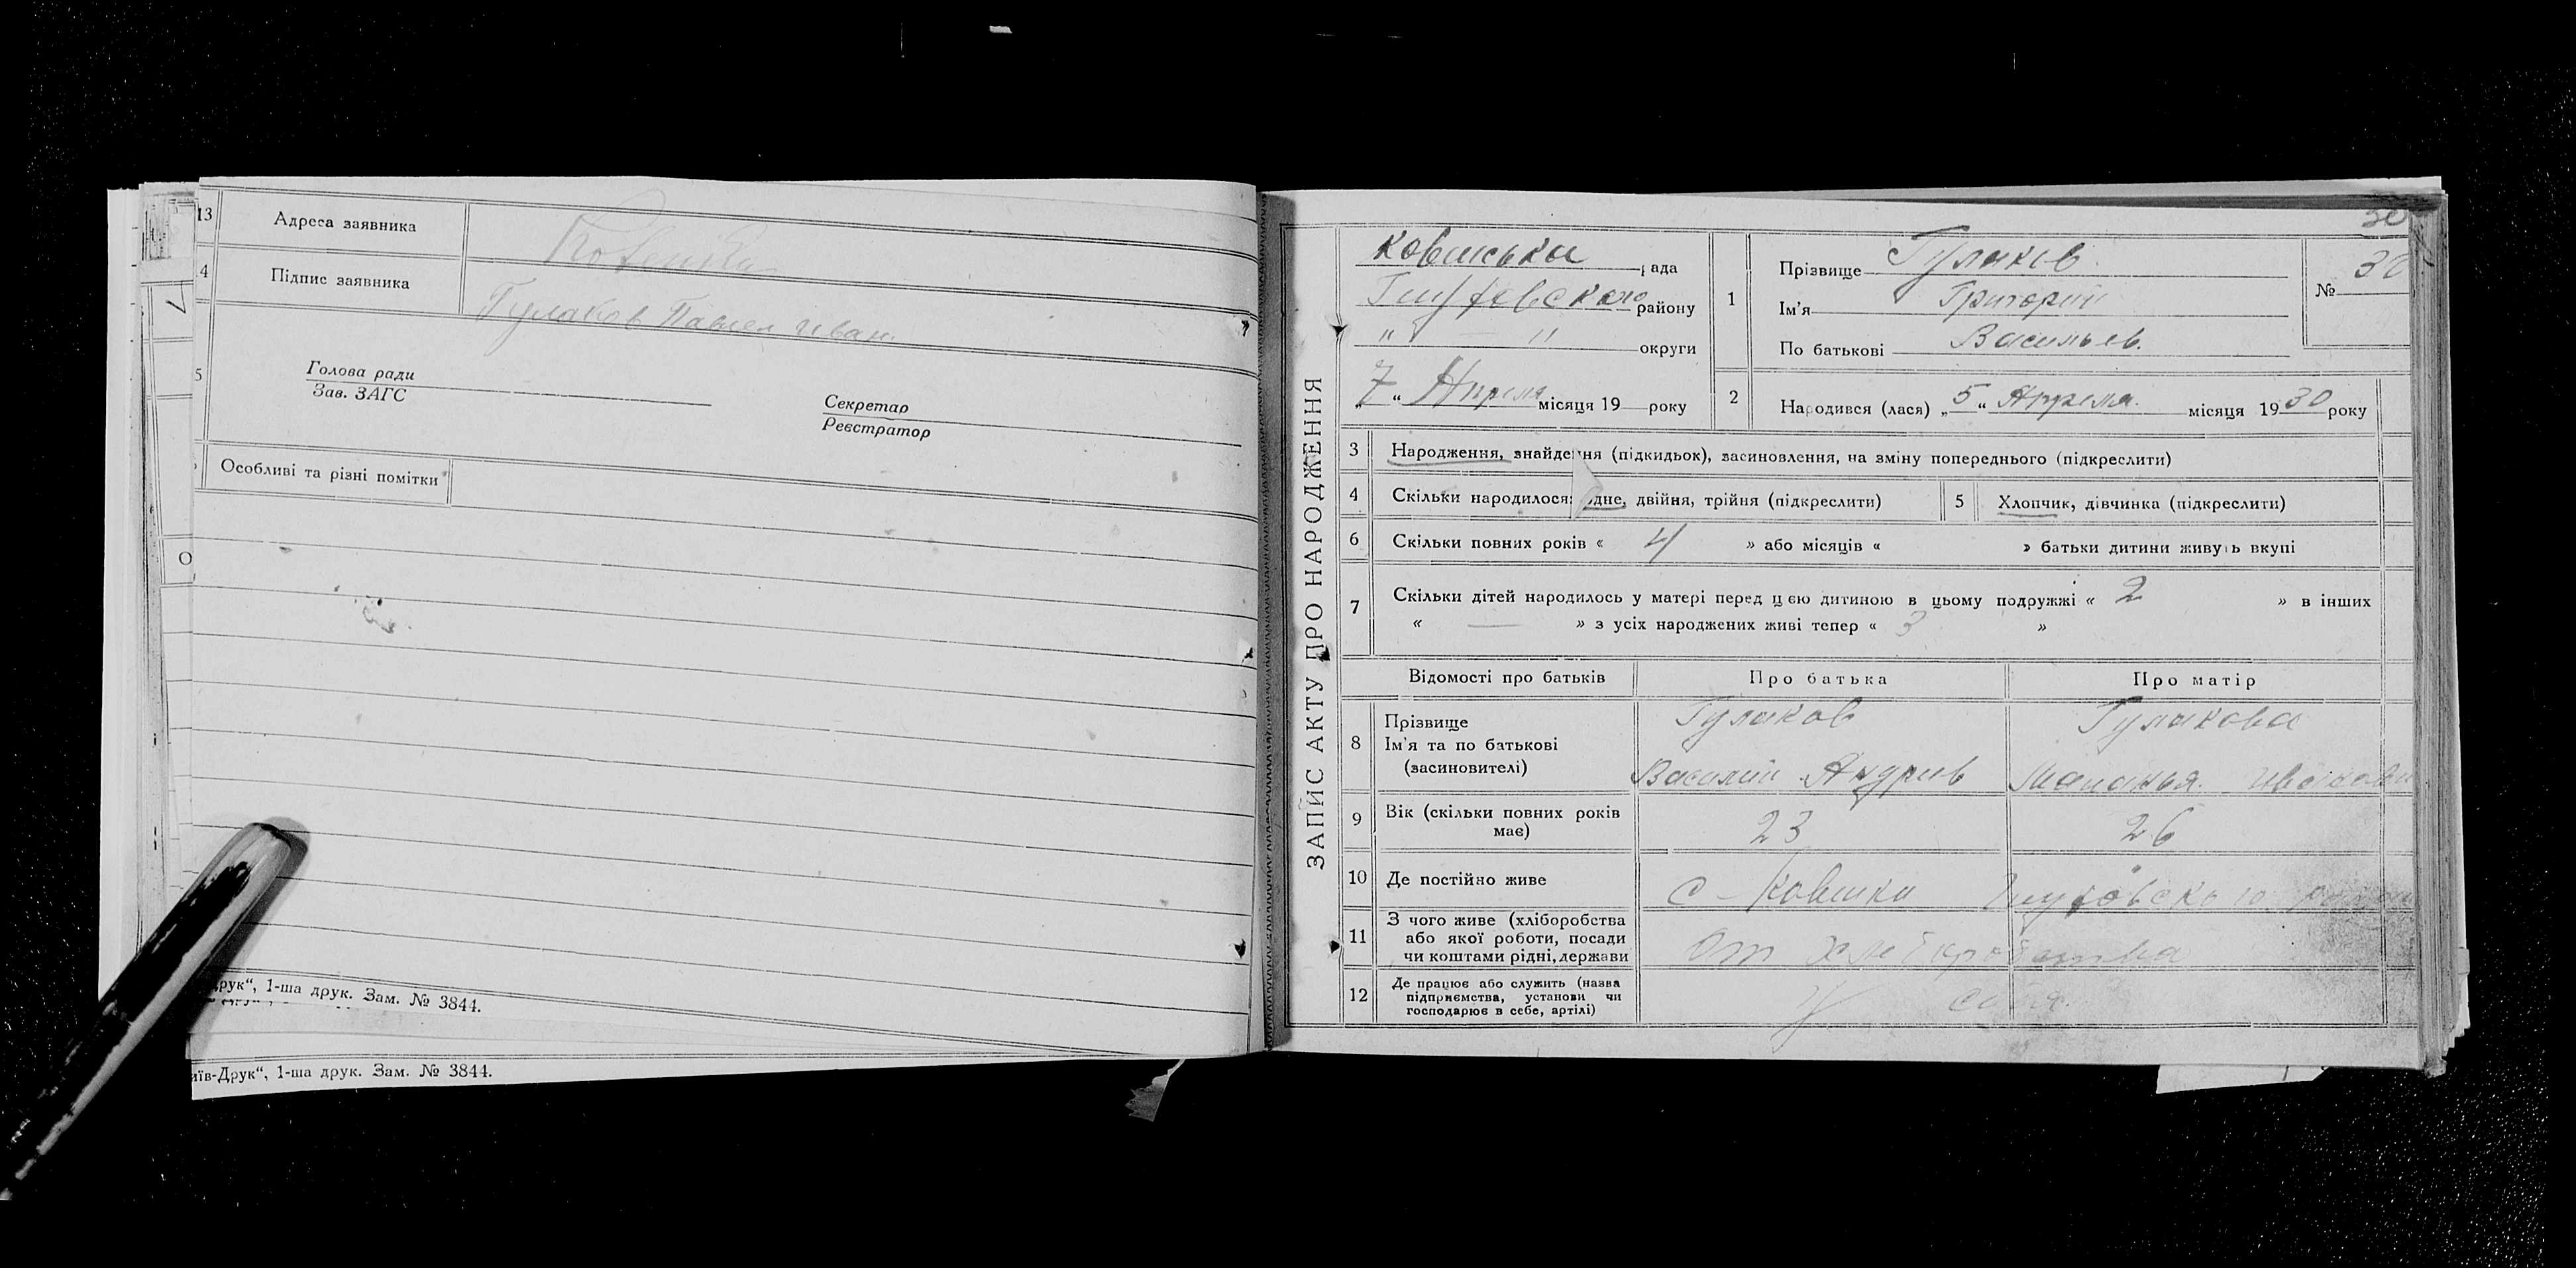 13 Адреса заявника
4 Підпис заявника
Гулаков Павел Иван.
5 Голова ради
Зав. ЗАГС
Секретар
Реєстратор
Особливі та різні помітки
О
друк“, 1-ша друк. Зам. № 3844.
иїв-Друк“, 1-ша друк. Зам. № 3844.
ЗАПИС АКТУ ПРО НАРОДЖЕННЯ
30
рада
району
" — " округи
„7“ Апреля місяця 19 року
1 Прізвище Гулаков
Ім'я Григорий
По батькові Васильев.
№ 30
2 Народився (лася) „5“ Апреля. місяця 1930 року
3 Народження, знайдення (підкидьок), засиновлення, на зміну попереднього (підкреслити)
4 Скільки народилося: одне, двійня, трійня (підкреслити)
5 Хлопчик, дівчинка (підкреслити)
6 Скільки повних років « 4 » або місяців « » батьки дитини живуть вкупі
7 Скільки дітей народилось у матері перед цєю дитиною в цьому подружжі « 2 » в інших
« — » з усіх народжених живі тепер « 3 »
Відомості про батьків Про батька Про матір
8 Прізвище Гулаков Гулакова
Ім'я та по батькові
(засиновителі) Василий Андрив Маланья Иванов
9 Вік (скільки повних років
має) 23 26
10 Де постійно живе с-
11 З чого живе (хліборобства
або якої роботи, посади
чи коштами рідні, держави От хлеборобства
12 Де працює або служить (назва
підприємства, установи чи
господарює в себе, артілі) У себя.